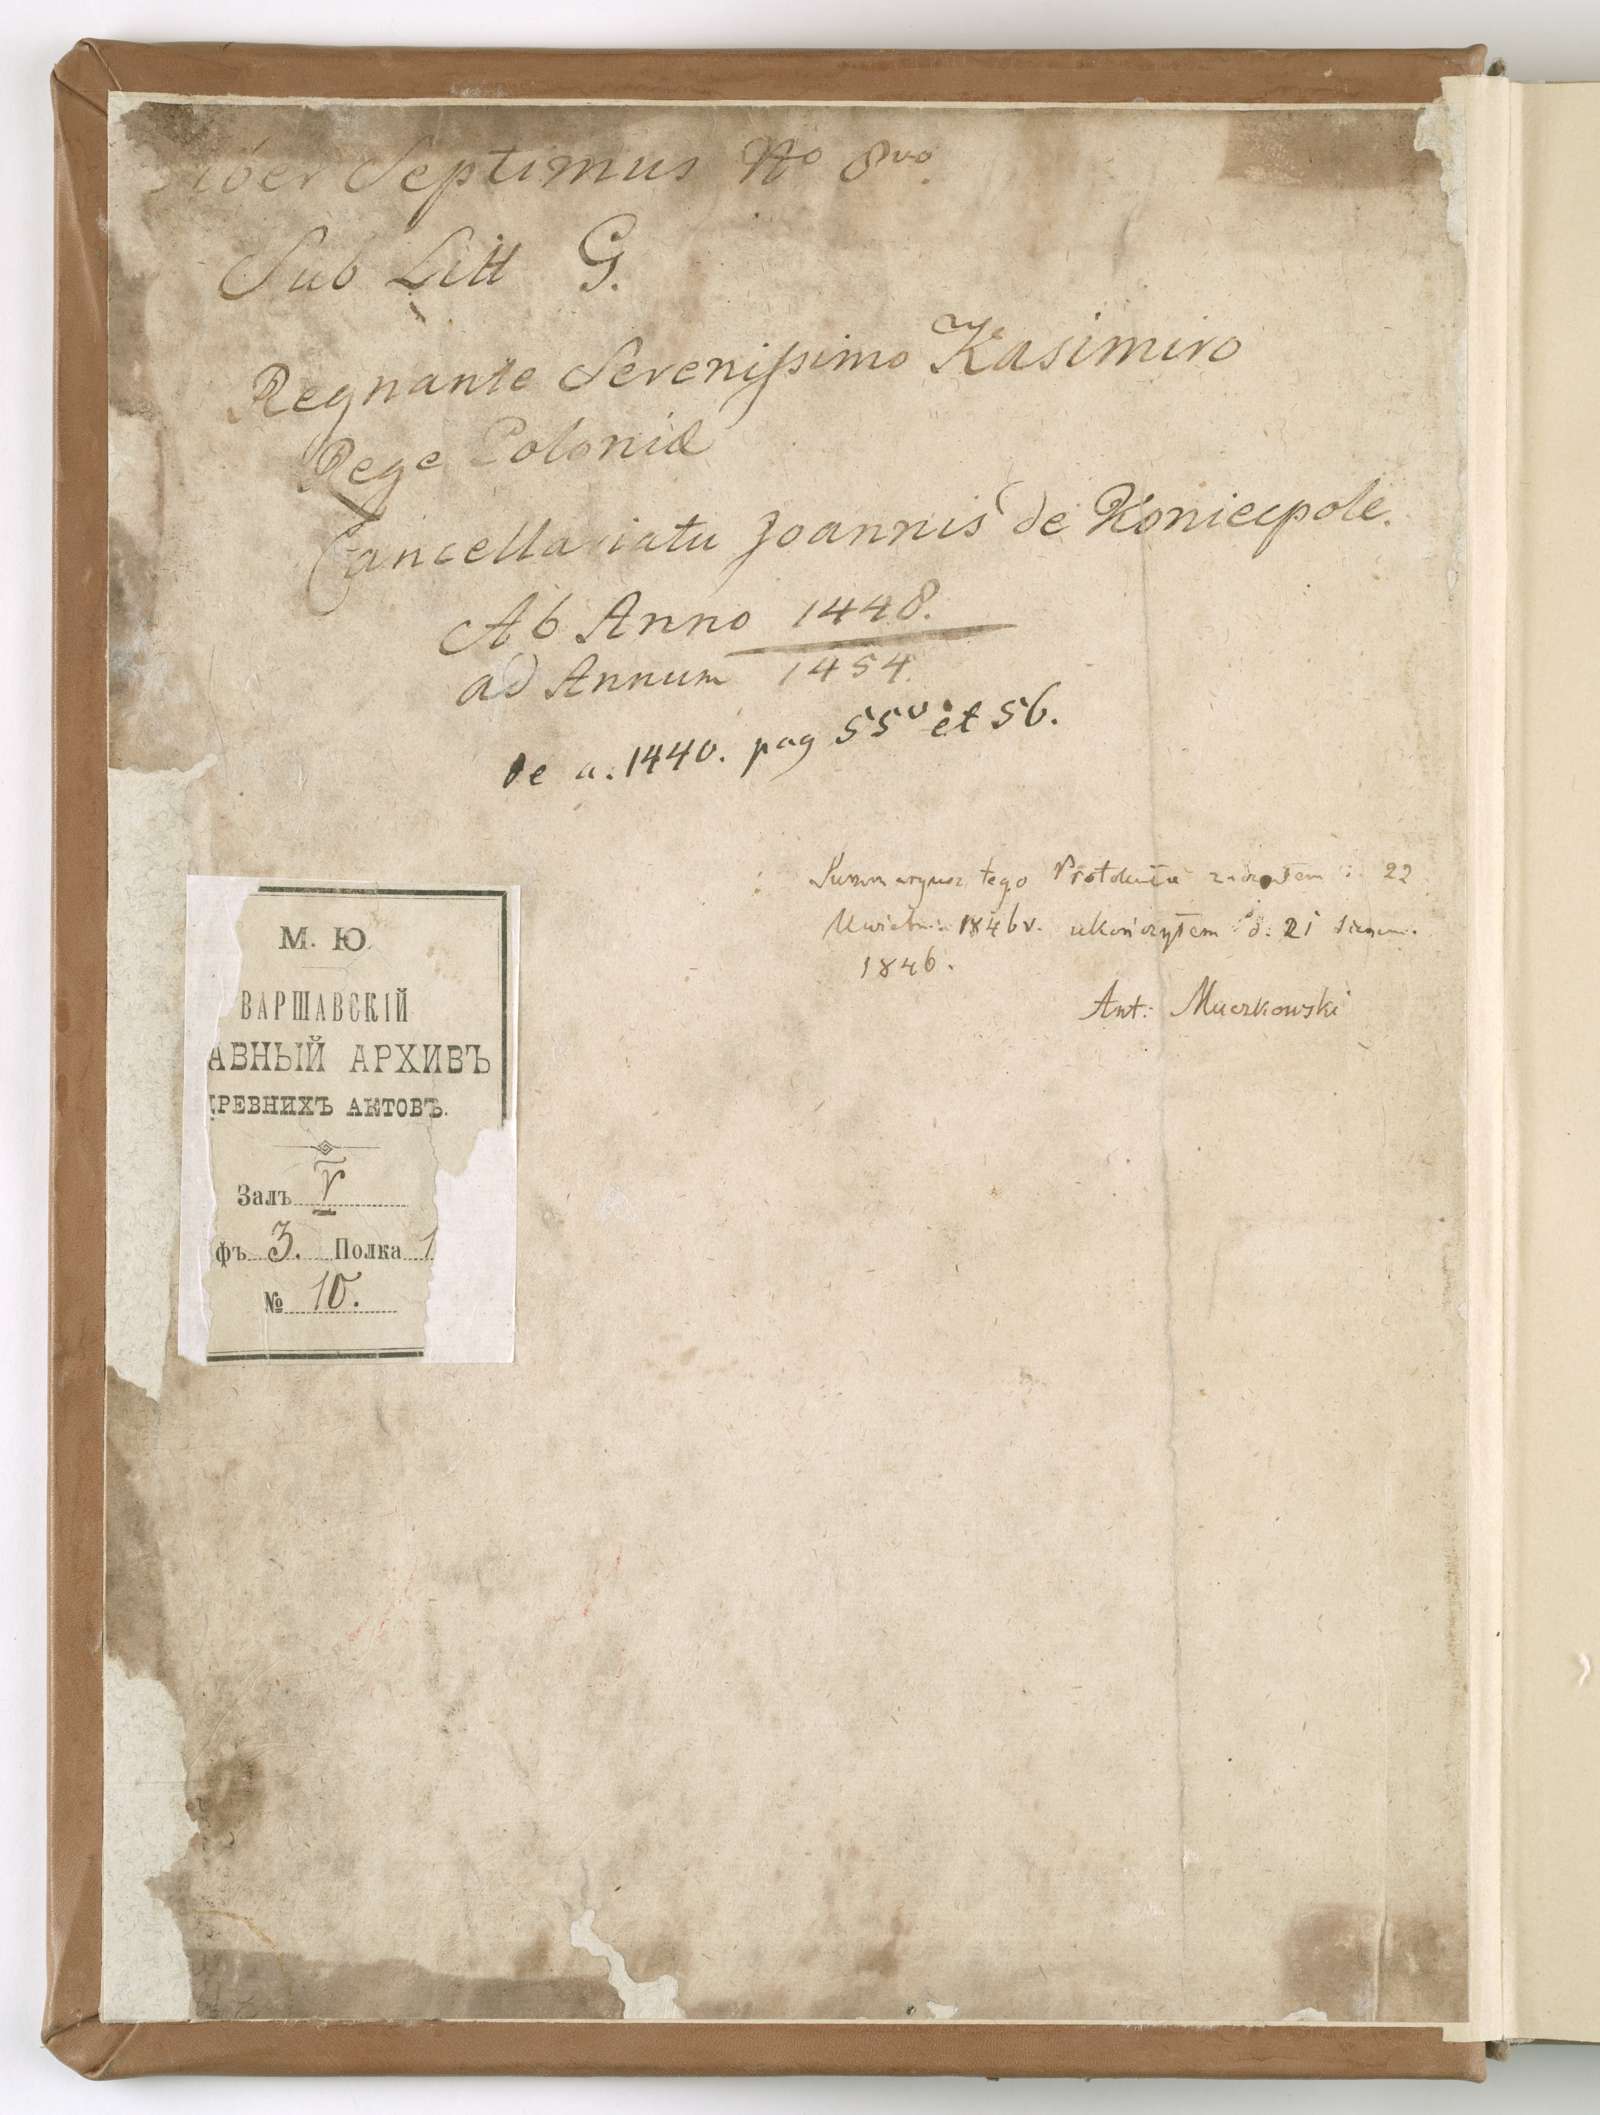 Liber Septimus No 8vo.
Sub Litt G.
Regnante Serenissimo Kasimiro
Rege Poloniæ
Cancellariatu Joannis de Koniecpole.
Ab Anno 1448.
ad Annum 1454.
De a. 1440. pag 55v et 56.
Summaryusz tego Protokułu zacząłem 22
Kwietnia 1846 r. ukończyłem d. 21
1846.
Ant: Muczkowski
М. Ю.
ВАРШАВСКІЙ
АВНЫЙ АРХИВЪ
ДРЕВНИХЪ АКТОВЪ.
Залъ V
фъ 3. Полка 1
№ 10.